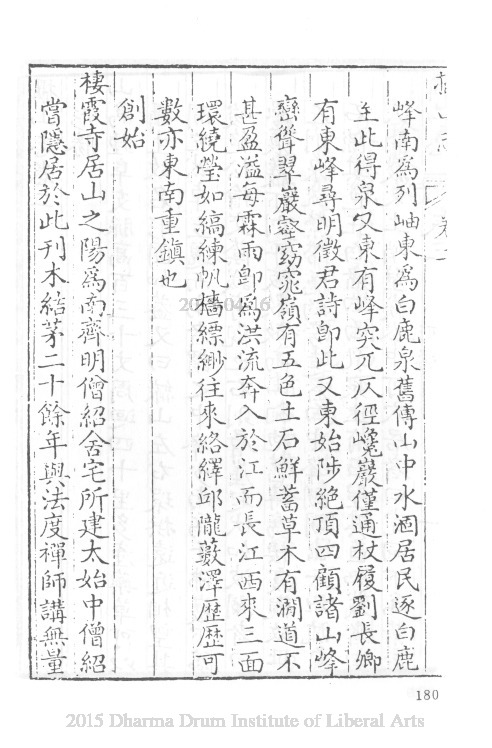 峰南爲列岫東爲白鹿泉舊傳山中水涸居民逐白鹿
至此得泉又東有峰突兀仄徑巉巖僅通杖履劉長卿
有東峰尋明徵君詩卽此又東始陟絶頂四顧諸山峰
巒聳翠巖壑窈窕嶺有五色土石鮮蓄草木有澗道不
甚盈溢每霖雨卽爲洪流奔入於江而長江西來三面
環繞瑩如縞練帆檣縹緲往來絡繹邱隴藪澤歷歷可
數亦東南重鎭也
創始
棲霞寺居山之陽爲南齊明僧紹舍宅所建太始中僧紹
嘗隱居於此刊木結茅二十餘年與法度禪師講無量
180
2015 Dharma Drum Institute of Liberal Arts